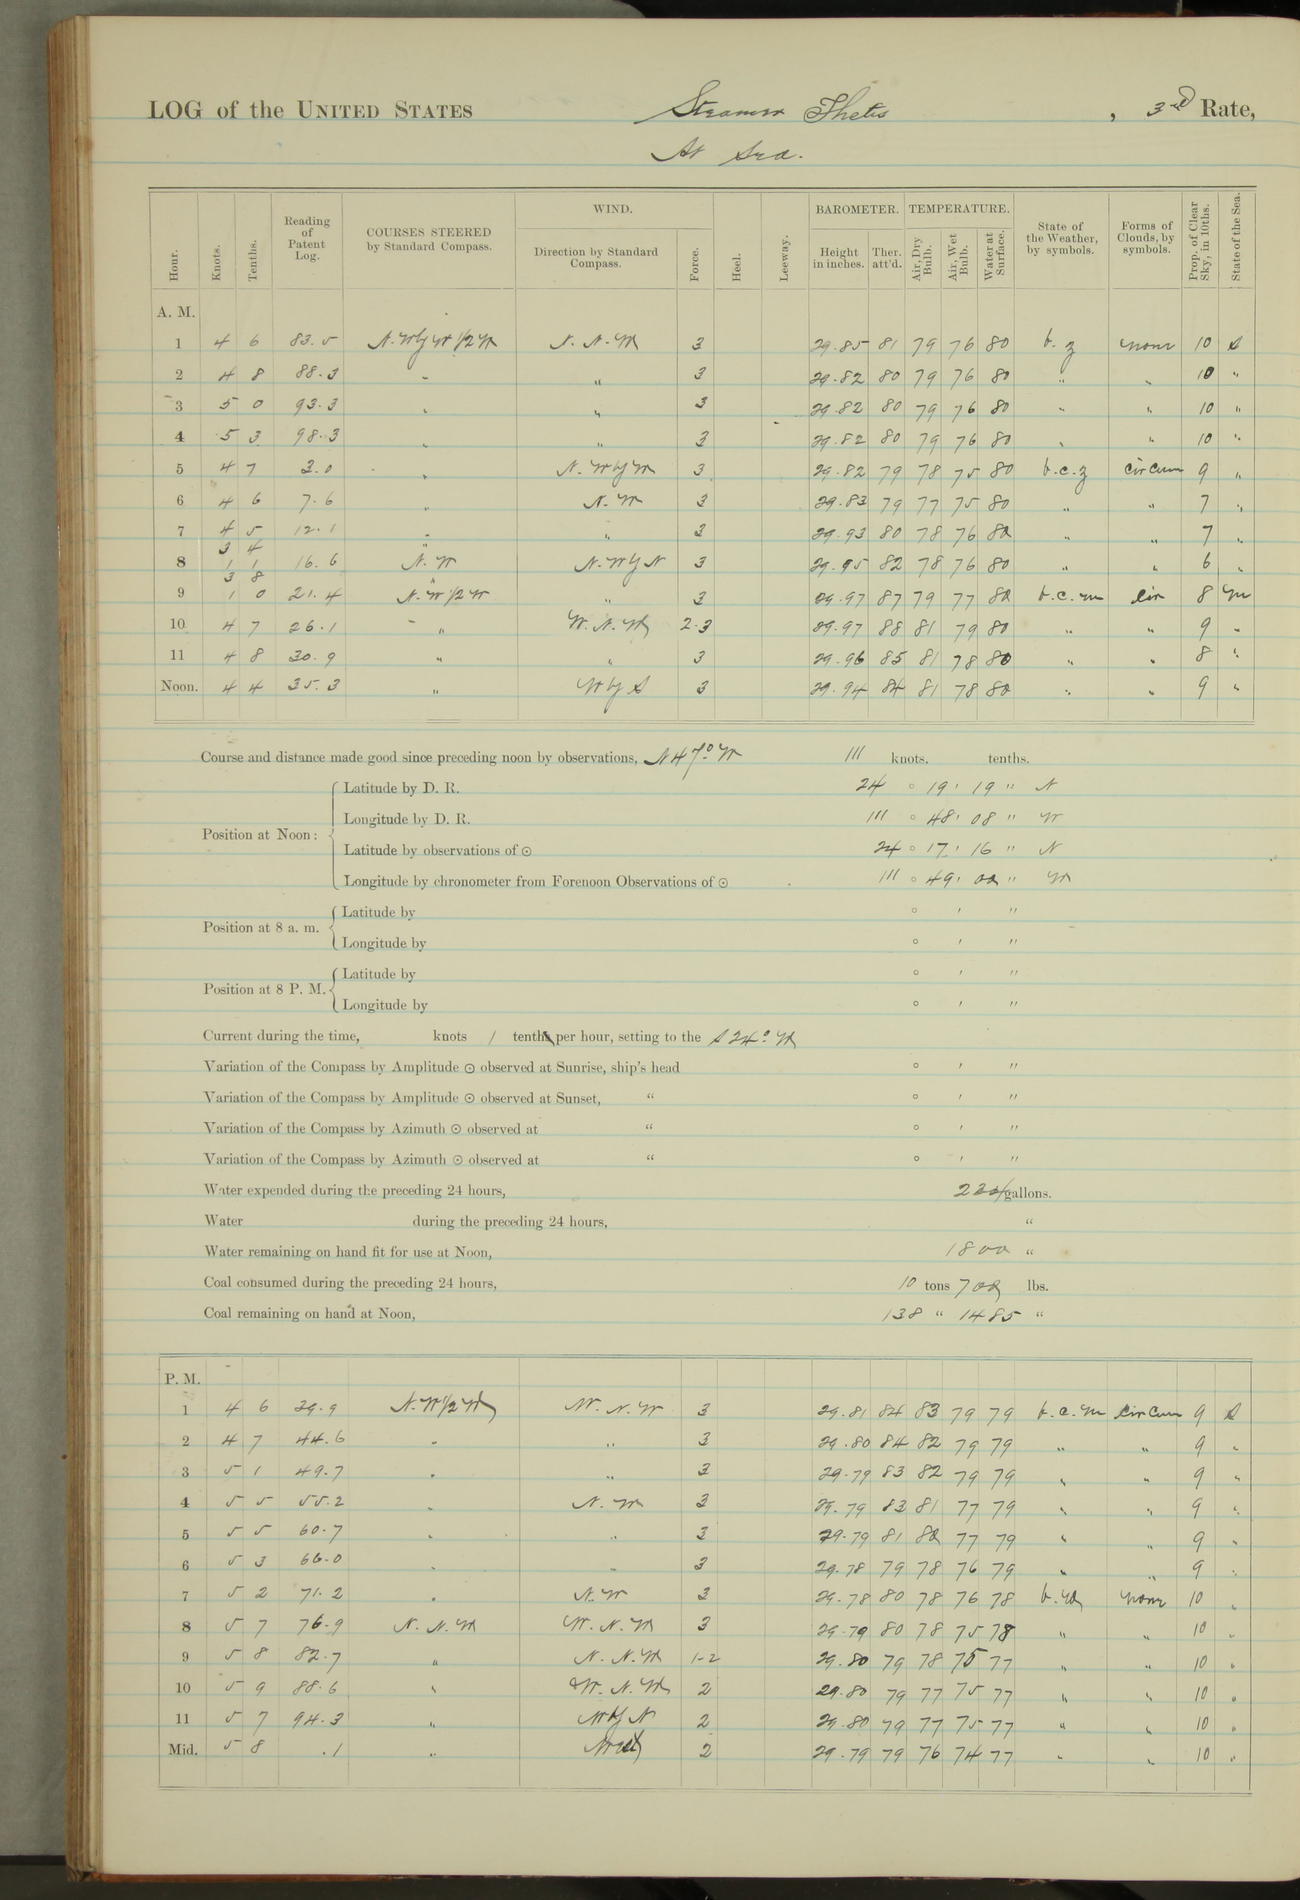 LOG of the UNITED STATES Steamer Thetis, 3rd Rate,
At Sea.
Hour. Knots. Tenths. Reading of Patent Log. COURSES STEERED by Standard Compass. WIND. Direction by Standard Compass. Force. Heel. Leeway. BAROMETER. Height in inches. Ther. att'd. TEMPERATURE. Air, Dry Bulb. Air, Wet Bulb. Water at Surface. State of the Weather, by symbols. Forms of Clouds, by symbols. Prop. of Clear Sky, in 10ths. State of the Sea.
A. M.
1 4 6 83.5 N.W by W 1/2 W N. N. W 3 29.85 81 79 76 80 b. z none 10 S
2 4 8 88.3 " " 3 29.82 80 79 76 80 " " 10 "
3 5 0 93.3 " " 3 29.82 80 79 76 80 " " 10 "
4 5 3 98.3 " " 3 29.82 80 79 76 80 " " 10 "
5 4 7 3.0 " N. W by W 3 29.82 79 78 75 80 b.c.z Cir Cum 9 "
6 4 6 7.6 " N. W 3 29.83 79 77 75 80 " " 7 "
7 4 5 12.1 " " 3 29.93 80 78 76 80 " " 7 "
3 4 "
8 1 1 16.6 N. W N. W by N 3 29.95 82 78 76 80 " " 6 "
3 8 "
9 1 0 21.4 N. W 1/2 W " 3 29.97 87 79 77 80 b.c.m Cir 8 M
10 4 7 26.1 " W. N. W 2-3 29.97 88 81 79 80 " " 9 "
11 4 8 30.9 " " 3 29.96 85 81 78 80 " " 8 "
Noon. 4 4 35.3 " W by S 3 29.94 84 81 78 80 " " 9 "
Course and distance made good since preceding noon by observations, N 47° W 111 knots. tenths.
Position at Noon:
Latitude by D. R. 24 ° 19 ' 19 " N
Longitude by D. R. 111 ° 48 ' 08 " W
Latitude by observations of ☉ 24 ° 17 ' 16 " N
Longitude by chronometer from Forenoon Observations of ☉ 111 ° 49 ' 00 " W
Position at 8 a. m.
Latitude by ° ' "
Longitude by ° ' "
Position at 8 P. M.
Latitude by ° ' "
Longitude by ° ' "
Current during the time, knots 1 tenth per hour, setting to the S 24° W
Variation of the Compass by Amplitude ☉ observed at Sunrise, ship's head ° ' "
Variation of the Compass by Amplitude ☉ observed at Sunset, " ° ' "
Variation of the Compass by Azimuth ☉ observed at " ° ' "
Variation of the Compass by Azimuth ☉ observed at " ° ' "
Water expended during the preceding 24 hours, gallons.
Water during the preceding 24 hours, "
Water remaining on hand fit for use at Noon, 1800 "
Coal consumed during the preceding 24 hours, 10 tons 700 lbs.
Coal remaining on hand at Noon, 138 " 1485 "
P. M.
1 4 6 39.9 N. W 1/2 W W. N. W 3 29.81 84 83 79 79 b.c.m Cir Cum 9 S
2 4 7 44.6 " " 3 29.80 84 82 79 79 " " 9 "
3 5 1 49.7 " " 3 29.79 83 82 79 79 " " 9 "
4 5 5 55.2 " N. W 3 29.79 83 81 77 79 " " 9 "
5 5 5 60.7 " " 3 29.79 81 80 77 79 " " 9 "
6 5 3 66.0 " " 3 29.78 79 78 76 79 " " 9 "
7 5 2 71.2 " N. W 3 29.78 80 78 76 78 b. m none 10 "
8 5 7 76.9 N. N. W W. N. W 3 29.79 80 78 75 78 " " 10 "
9 5 8 82.7 " N. N. W 1-2 29.80 79 78 75 77 " " 10 "
10 5 9 88.6 " W. N. W 2 29.80 79 77 75 77 " " 10 "
11 5 7 94.3 " W by N 2 29.80 79 77 75 77 " " 10 "
Mid. 5 8 .1 " West 2 29.79 79 76 74 77 " " 10 "